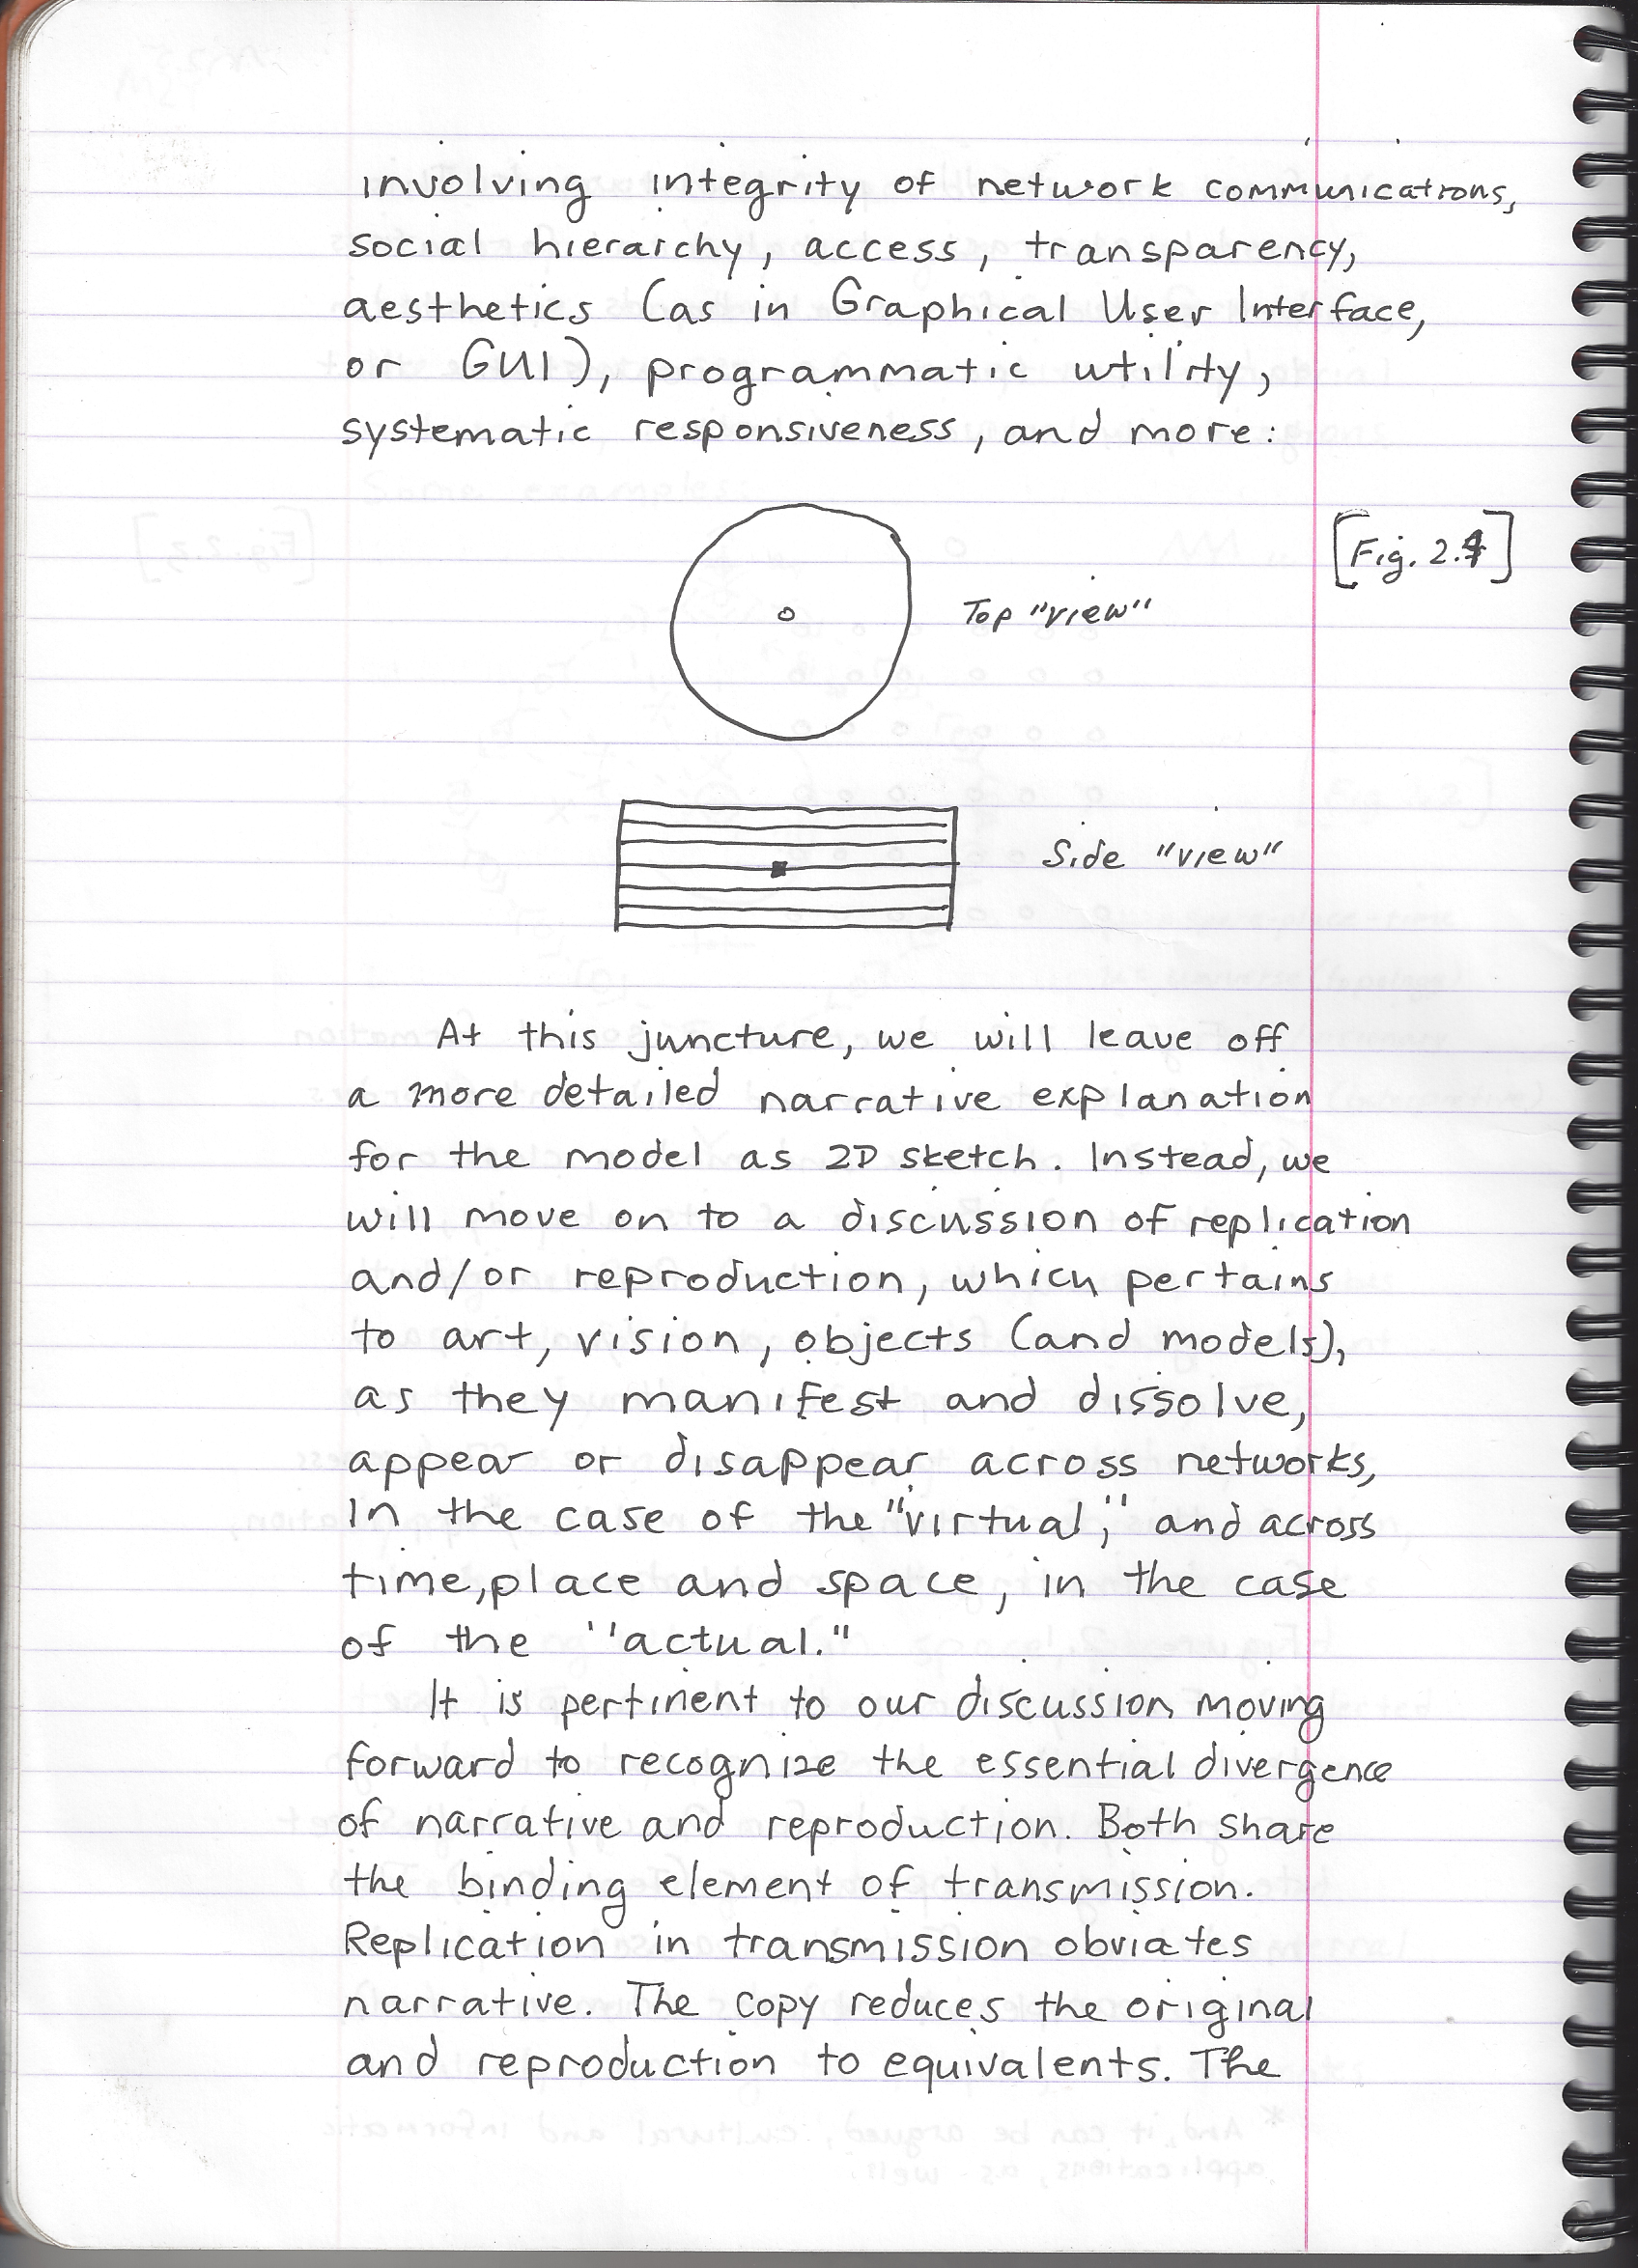 involving integrity of network communications,
social hierarchy, access, transparency,
aesthetics (as in Graphical User Interface,
or GUI), programmatic utility,
systematic responsiveness, and more:
[Fig. 2.4]
Top "view"
Side "view"
At this juncture, we will leave off
a more detailed narrative explanation
for the model as 2D sketch. Instead, we
will move on to a discussion of replication
and/or reproduction, which pertains
to art, vision, objects (and models),
as they manifest and dissolve,
appear or disappear across networks,
in the case of the "virtual," and across
time, place and space, in the case
of the "actual."
It is pertinent to our discussion moving
forward to recognize the essential divergence
of narrative and reproduction. Both share
the binding element of transmission.
Replication in transmission obviates
narrative. The copy reduces the original
and reproduction to equivalents. The